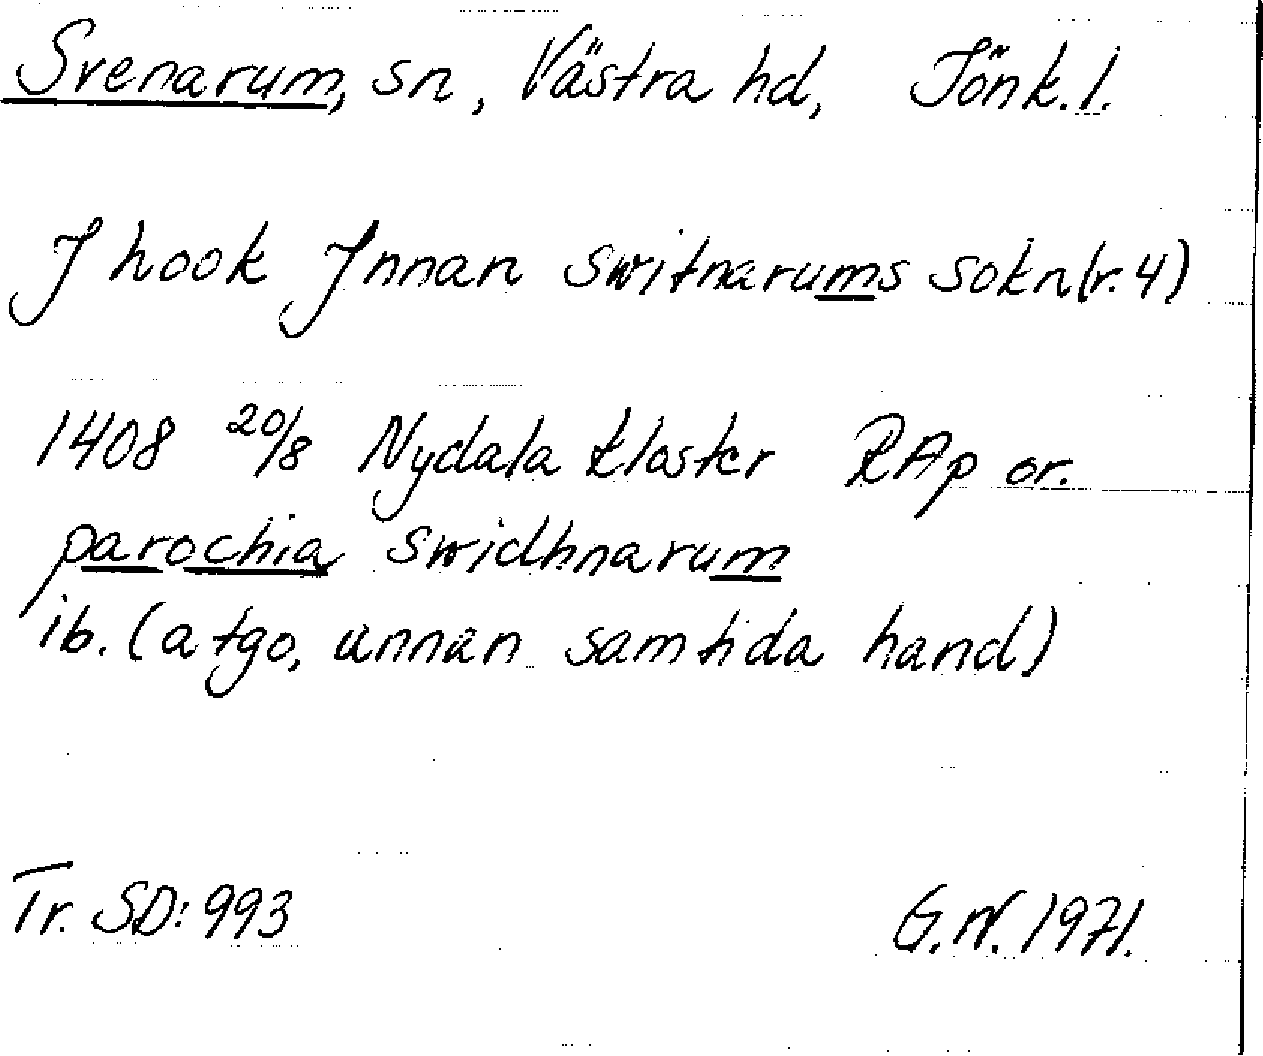 Svenarum, sn, Västra hd, Jönk. l.
J hook Jnnan switnarums sokn (r. 4)
1408 20/8 Nydala kloster RAp or.
parochia swidhnarum
ib. (a tgo, annan samtida hand)
Tr. SD: 993 G.N. 1971.